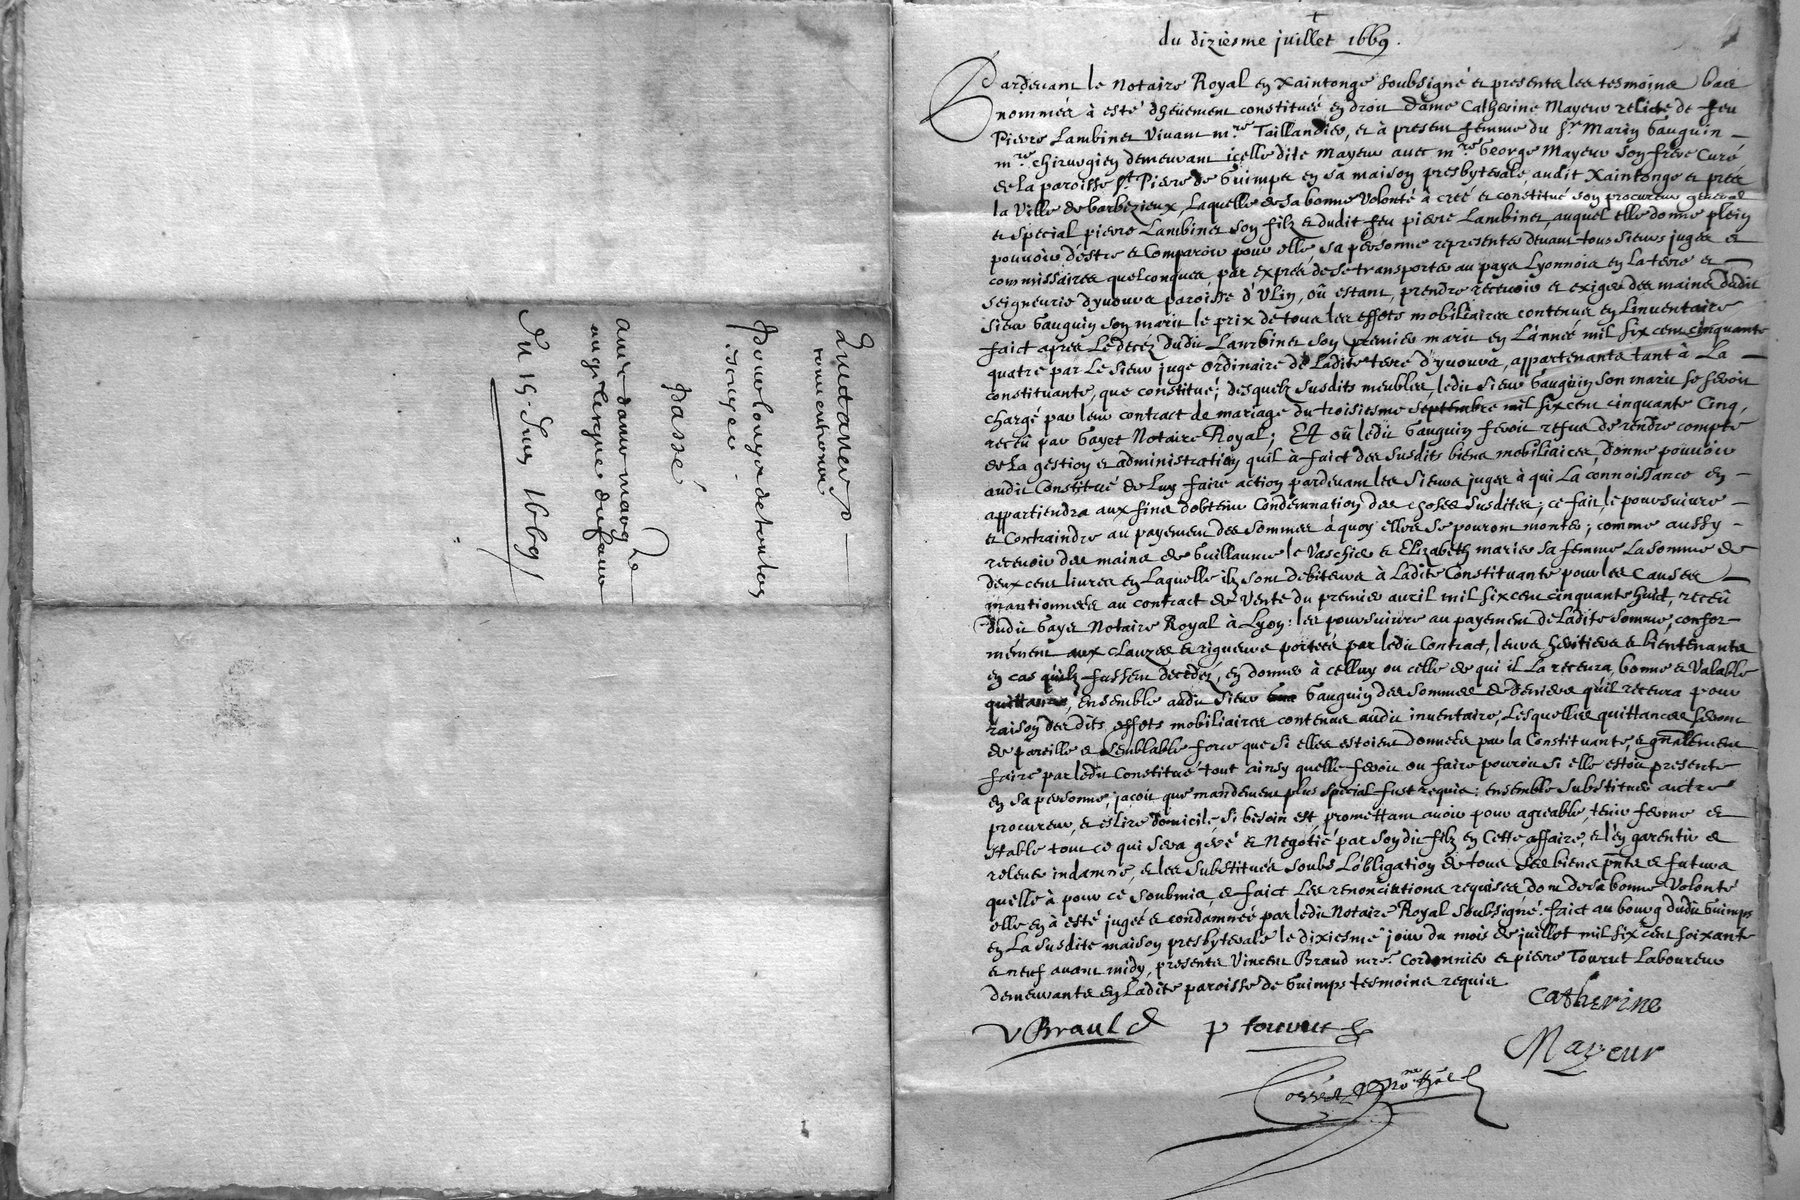 Quittance
Pour
passé
avec dame marg
Du 15. Juin 1669
du dizièsme juillet 1669.
Pardevant le Notaire Royal en Xaintonge soubsigné et presents les tesmoins bas
nommés à esté dheüement constitué en droit dame Catherine Mayeur relicte de feu
Pierre Lambinet vivant mre Taillandier, et à present femme du Sr Marin Gauguin
mre chirurgien demeurant icelle dite Mayeur avec mre George Mayeur son frere Curé
de la paroisse St Pierre de Guimps en sa maison presbyterale, audit Xaintonge et pres
la Ville de barbezieux, Laquelle de sa bonne volonté à creé et constitué son procureur general
et special pierre Lambinet son filz et dudit feu pierre Lambinet, auquel elle donne plein
pouvoir destre et comparoir pour elle sa personne representer devant tous sieurs juges et
commissaires quelconques, par exprés de se transporter au pays Lyonnois en la terre et
seigneurie dyvours paroisse d'Ulin, où estant, prendre recevoir et exiger des mains dudit
sieur Gauguin son marit le prix de tous les effets mobiliaires contenus en L'inventaire
faict apres Le decéz dudit Lambinet son premier marit en L'année mil six cent cinquante
quatre par Le sieur juge ordinaire de Ladite terre dyvours, appartenants tant à La
constituante, que constitué; desquelz susdits meubles, ledit sieur Gauguin son marit se seroit
chargé par leur contract de mariage du troisiesme septembre mil six cent cinquante cinq,
receü par Gayet Notaire Royal; Et où ledit Gauguin feroit refus de rendre compte
de La gestion et administration quil à faict des susdits biens mobiliaires, donne pouvoir
audit Constitué de Luy faire action pardevant les sieurs juges à qui La connoissance en
appartiendra aux fins dobtenir condemnation des choses susdites; ce fait, le poursuivre
et contraindre au payement des sommes à quoy elles se pouront monter; comme aussy
recevoir des mains de Guillaume le Vaschier et Elizabeth marier sa femme La somme de
deux cent livres en Laquelle ilz sont debiteurs à Ladite Constituante pour les causes
mantionneés au contract de vente du premier avril mil six cent cinquante huict, receü
dudit Gayet Notaire Royal à Lyon: les poursuivre au payement de Ladite somme confor-
mément aux clauzes et rigueurs portées par ledit Contract, leurs heritiers et bientenants
en cas quilz fussent decedéz, en donner à celluy ou celle de qui il La recevra, bonne et valable
quittance, ensemble audit sieur Gauguin des sommes et deniers quil recevra pour
raison des dits effets mobiliaires contenus audit inventaire, Lesquelles quittances seront
de pareille et semblable force que si elles estoient données par la Constituante, et gñalement
faire par ledit Constitué tout ainsy quelle feroit ou faire pouroit si elle estoit presente
en sa personne, jaçoit que mandement plus special fust requis: ensemble substituer autre
procureur, et eslire domicile si besoin est promettant avoir pour agreable, tenir ferme et
stable tout ce qui sera géré et negotié par soudit filz en Cette affaire, et l'en garentir et
relever indamne, et les substitués soubs L'obligation de tous ses biens pñts et futurs
quelle à pour ce soubmis, et faict Les renonciations requises dont de sa bonne volonté
elle en à esté jugée et condamnée par ledit Notaire Royal soubsigné. faict au bourg dudit Guimps
en La susdite maison presbyterale le dixiesme jour du mois de juillet mil six cent soixante
et neuf avant midy, presents Vincent Braud mre Cordonnier et pierre Tourut Laboureur
demeurants en Ladite paroisse de Guimps tesmoins requis
Catherine
V Brauld p tourut
Mayeur